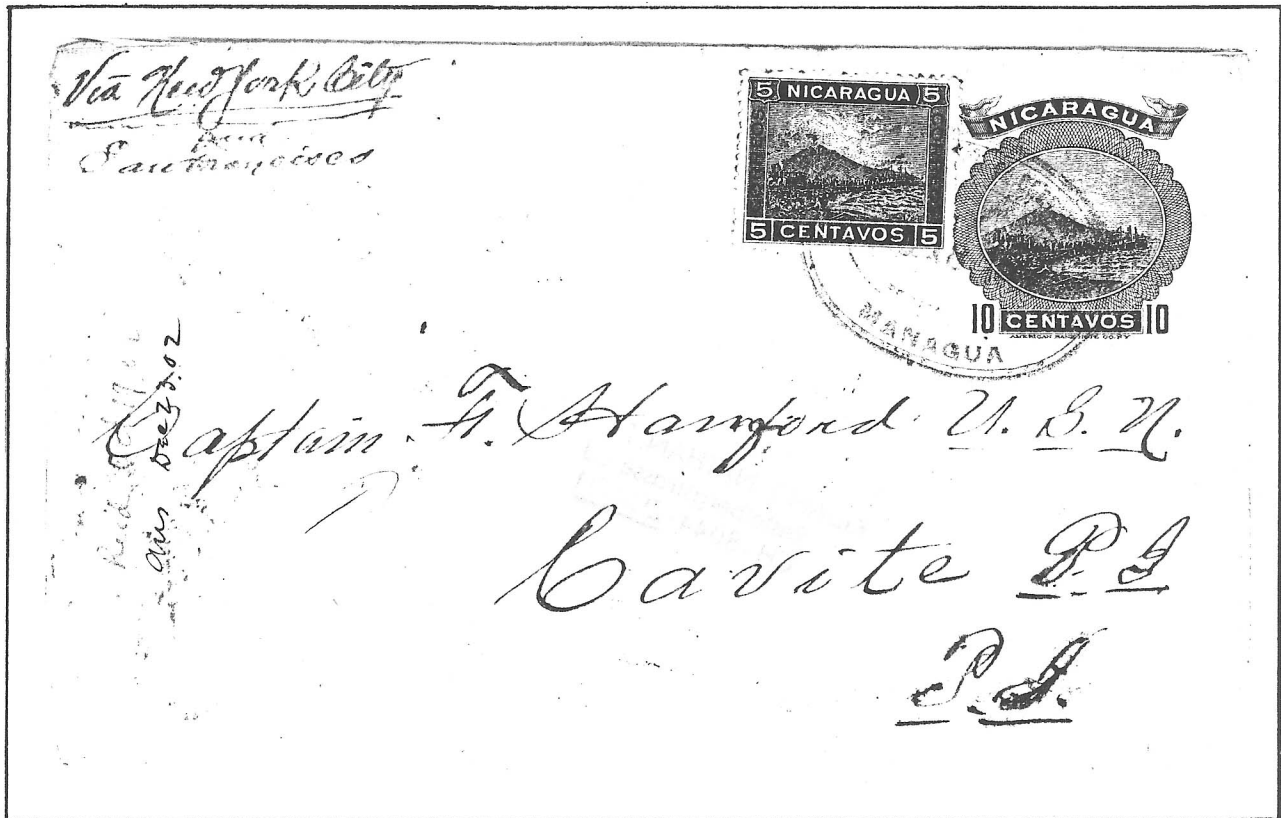 Via New York City
para
San Francisco
5 NICARAGUA 5
5 CENTAVOS 5
NICARAGUA
10 CENTAVOS 10
AMERICAN BANK NOTE CO. N.Y.
MANAGUA
ans Dec 23.02
Captain F. Hanford U. S. N.
Cavite P. I
P. I.